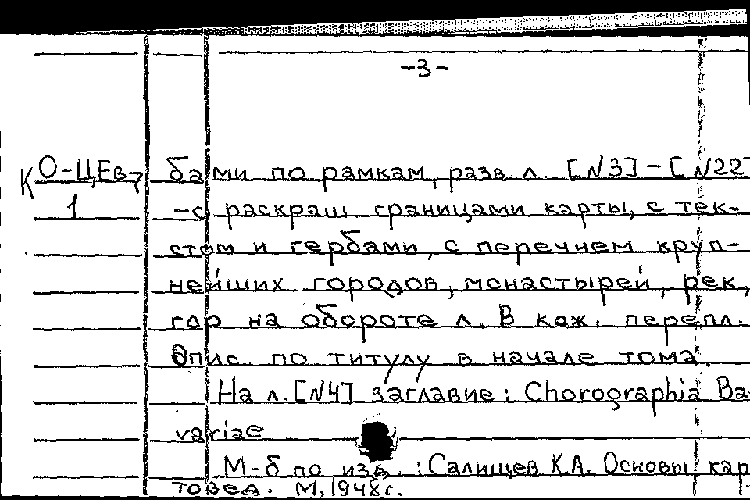 -3-
К О-ЦЕв-7
1
бами по рамкам, разв. л. [N3]-[N22
-с раскраш границами карты, с тек-
стом и гербами, с перечнем круп-
нейших городов, монастырей, рек,
гор на обороте л. В кож. перепл.
Опис. по титулу в начале тома.
На л.[N4] заглавие: Chorographia Ba
variae
М-б по изд.: Салищев К.А. Основы кар
товед. М, 1948г.